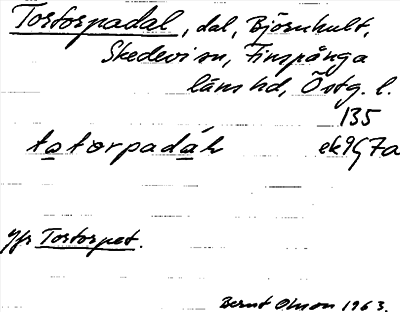 Torstorpadal, dal, Björnhult,
Skedevi sn, Finspånga
läns hd, Östg. l.
135
tɷtorpadáh ek 9G7a
Jfr Torstorpet.
Bernt Olsson 1963.